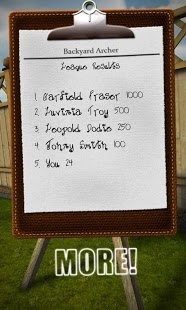 Backyard Archer
League Results
1. Garfield Fraser 1000
2. Luvinia Troy 500
3. Leopold Dodie 250
4. Johnny Smith 100
5. You 24
MORE!